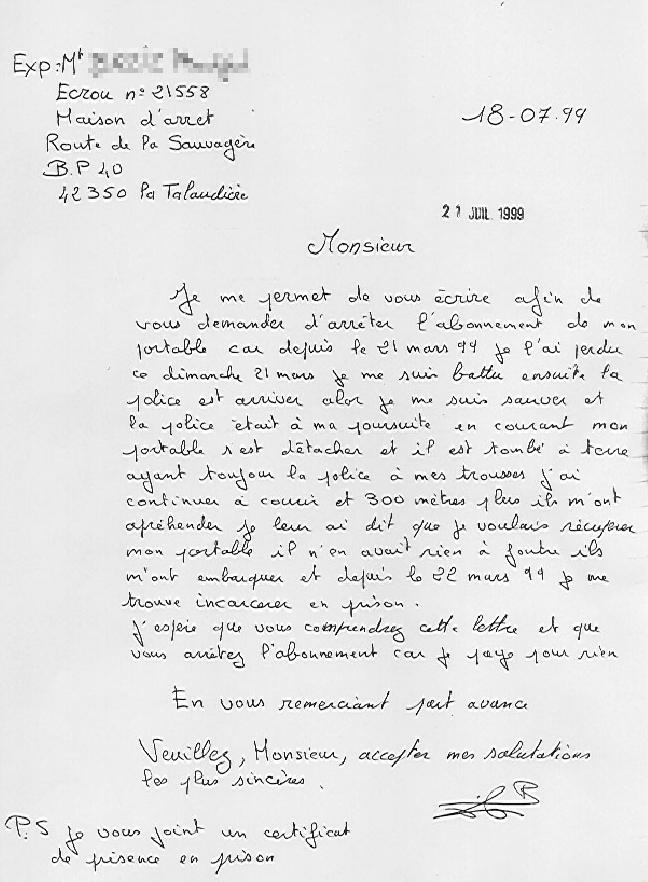 Exp: Mr
Ecrou n° 21558
Maison d'arret
Route de la Sauvagère
B.P 40
42350 la Talaudière
18-07.99
21 JUIL. 1999
Monsieur
Je me permet de vous écrire afin de
vous demander d'arréter l'abonnement de mon
portable car depuis le 21 mars 99 je l'ai perdu
ce dimanche 21 mars je me suis battu ensuite la
police est arriver alor je me suis sauver et
la police était à ma poursuite en courant mon
portable s'est détacher et il est tombé à terre
ayant toujour la police à mes trousses j'ai
continuer à courir et 300 mètres plus ils m'ont
apréhender je leur ai dit que je voulais récuperer
mon portable il n'en avait rien à foutre ils
m'ont embarquer et depuis le 22 mars 99 je me
trouve incarcerer en prison.
J'espère que vous comprendrez cette lettre et que
vous arrêtez l'abonnement car je paye pour rien
En vous remerciant part avance
Veuillez, Monsieur, accepter mes salutations
les plus sincères.
P.S je vous joint un certificat
de présence en prison